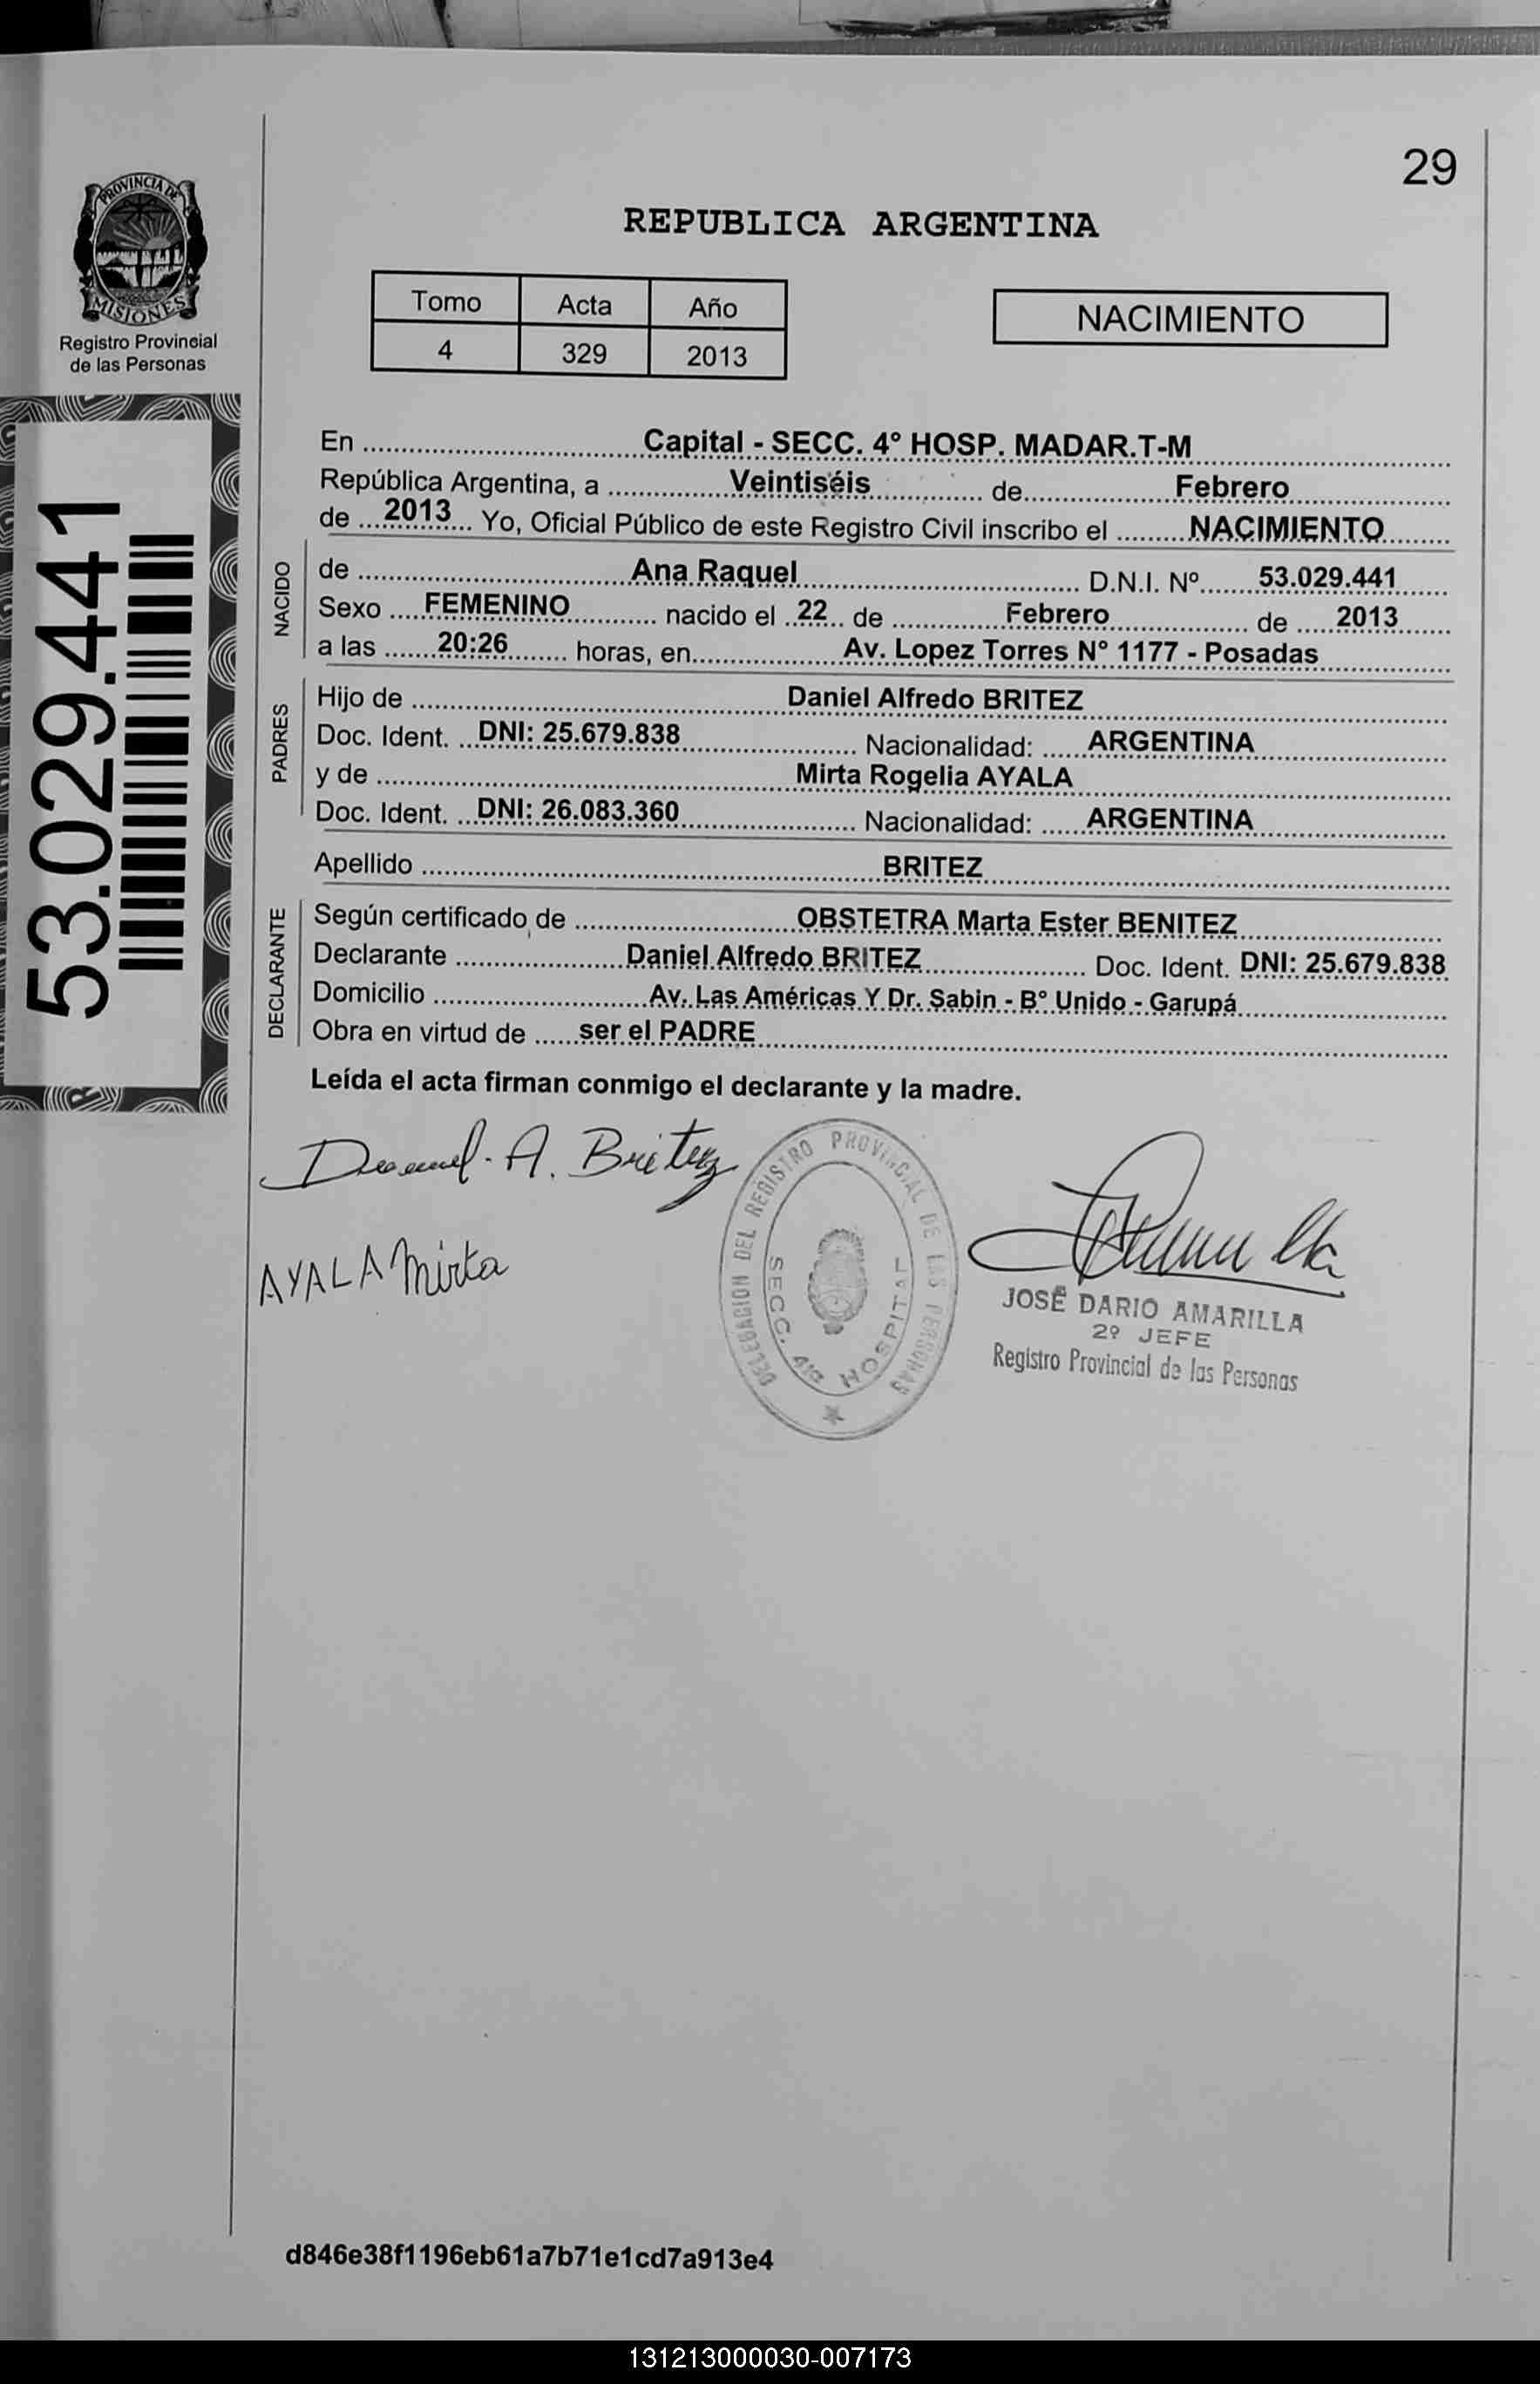 29
PROVINCIA DE
MISIONES
Registro Provincial
de las Personas
REPUBLICA ARGENTINA
Tomo Acta Año
4 329 2013
NACIMIENTO
53.029.441
En Capital - SECC. 4° HOSP. MADAR.T-M
República Argentina, a Veintiséis de Febrero
de 2013 Yo, Oficial Público de este Registro Civil inscribo el NACIMIENTO
NACIDO
de Ana Raquel D.N.I. Nº 53.029.441
Sexo FEMENINO nacido el 22 de Febrero de 2013
a las 20:26 horas, en Av. Lopez Torres N° 1177 - Posadas
PADRES
Hijo de Daniel Alfredo BRITEZ
Doc. Ident. DNI: 25.679.838 Nacionalidad: ARGENTINA
y de Mirta Rogelia AYALA
Doc. Ident. DNI: 26.083.360 Nacionalidad: ARGENTINA
Apellido BRITEZ
DECLARANTE
Según certificado de OBSTETRA Marta Ester BENITEZ
Declarante Daniel Alfredo BRITEZ Doc. Ident. DNI: 25.679.838
Domicilio Av. Las Américas Y Dr. Sabin - B° Unido - Garupá
Obra en virtud de ser el PADRE
Leída el acta firman conmigo el declarante y la madre.
Daniel. A. Britez
AYALA Mirta
DELEGACION DEL REGISTRO PROVINCIAL DE LAS PERSONAS
SECC. 4ta HOSPITAL
JOSÉ DARIO AMARILLA
2º JEFE
Registro Provincial de las Personas
d846e38f1196eb61a7b71e1cd7a913e4
131213000030-007173